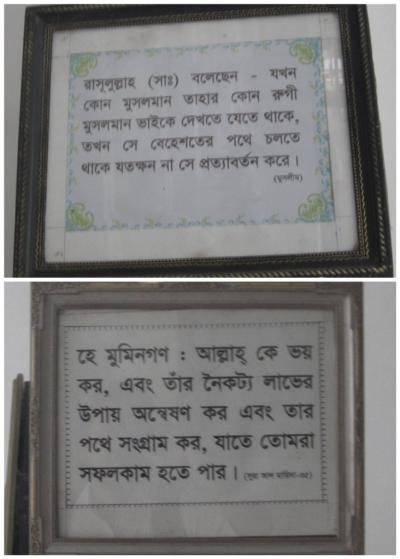 রাসূলুল্লাহ (সাঃ) বলেছেন - যখন
কোন মুসলমান তাহার কোন রুগী
মুসলমান ভাইকে দেখতে যেতে থাকে,
তখন সে বেহেশতের পথে চলতে
থাকে যতক্ষন না সে প্রত্যাবর্তন করে।
(মুসলীম)
হে মুমিনগণ : আল্লাহ্ কে ভয়
কর, এবং তাঁর নৈকট্য লাভের
উপায় অন্বেষণ কর এবং তার
পথে সংগ্রাম কর, যাতে তোমরা
সফলকাম হতে পার। (সূরা আল মায়িদা-৩৫)